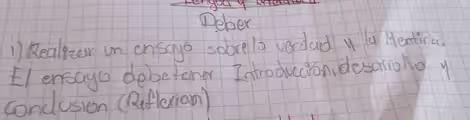 Lengua y Literatura
Deber
1) Realizar un ensayo sobre la verdad y la Mentira.
El ensayo debe tener Introducción, desarrollo y
conclusion (Reflexion)